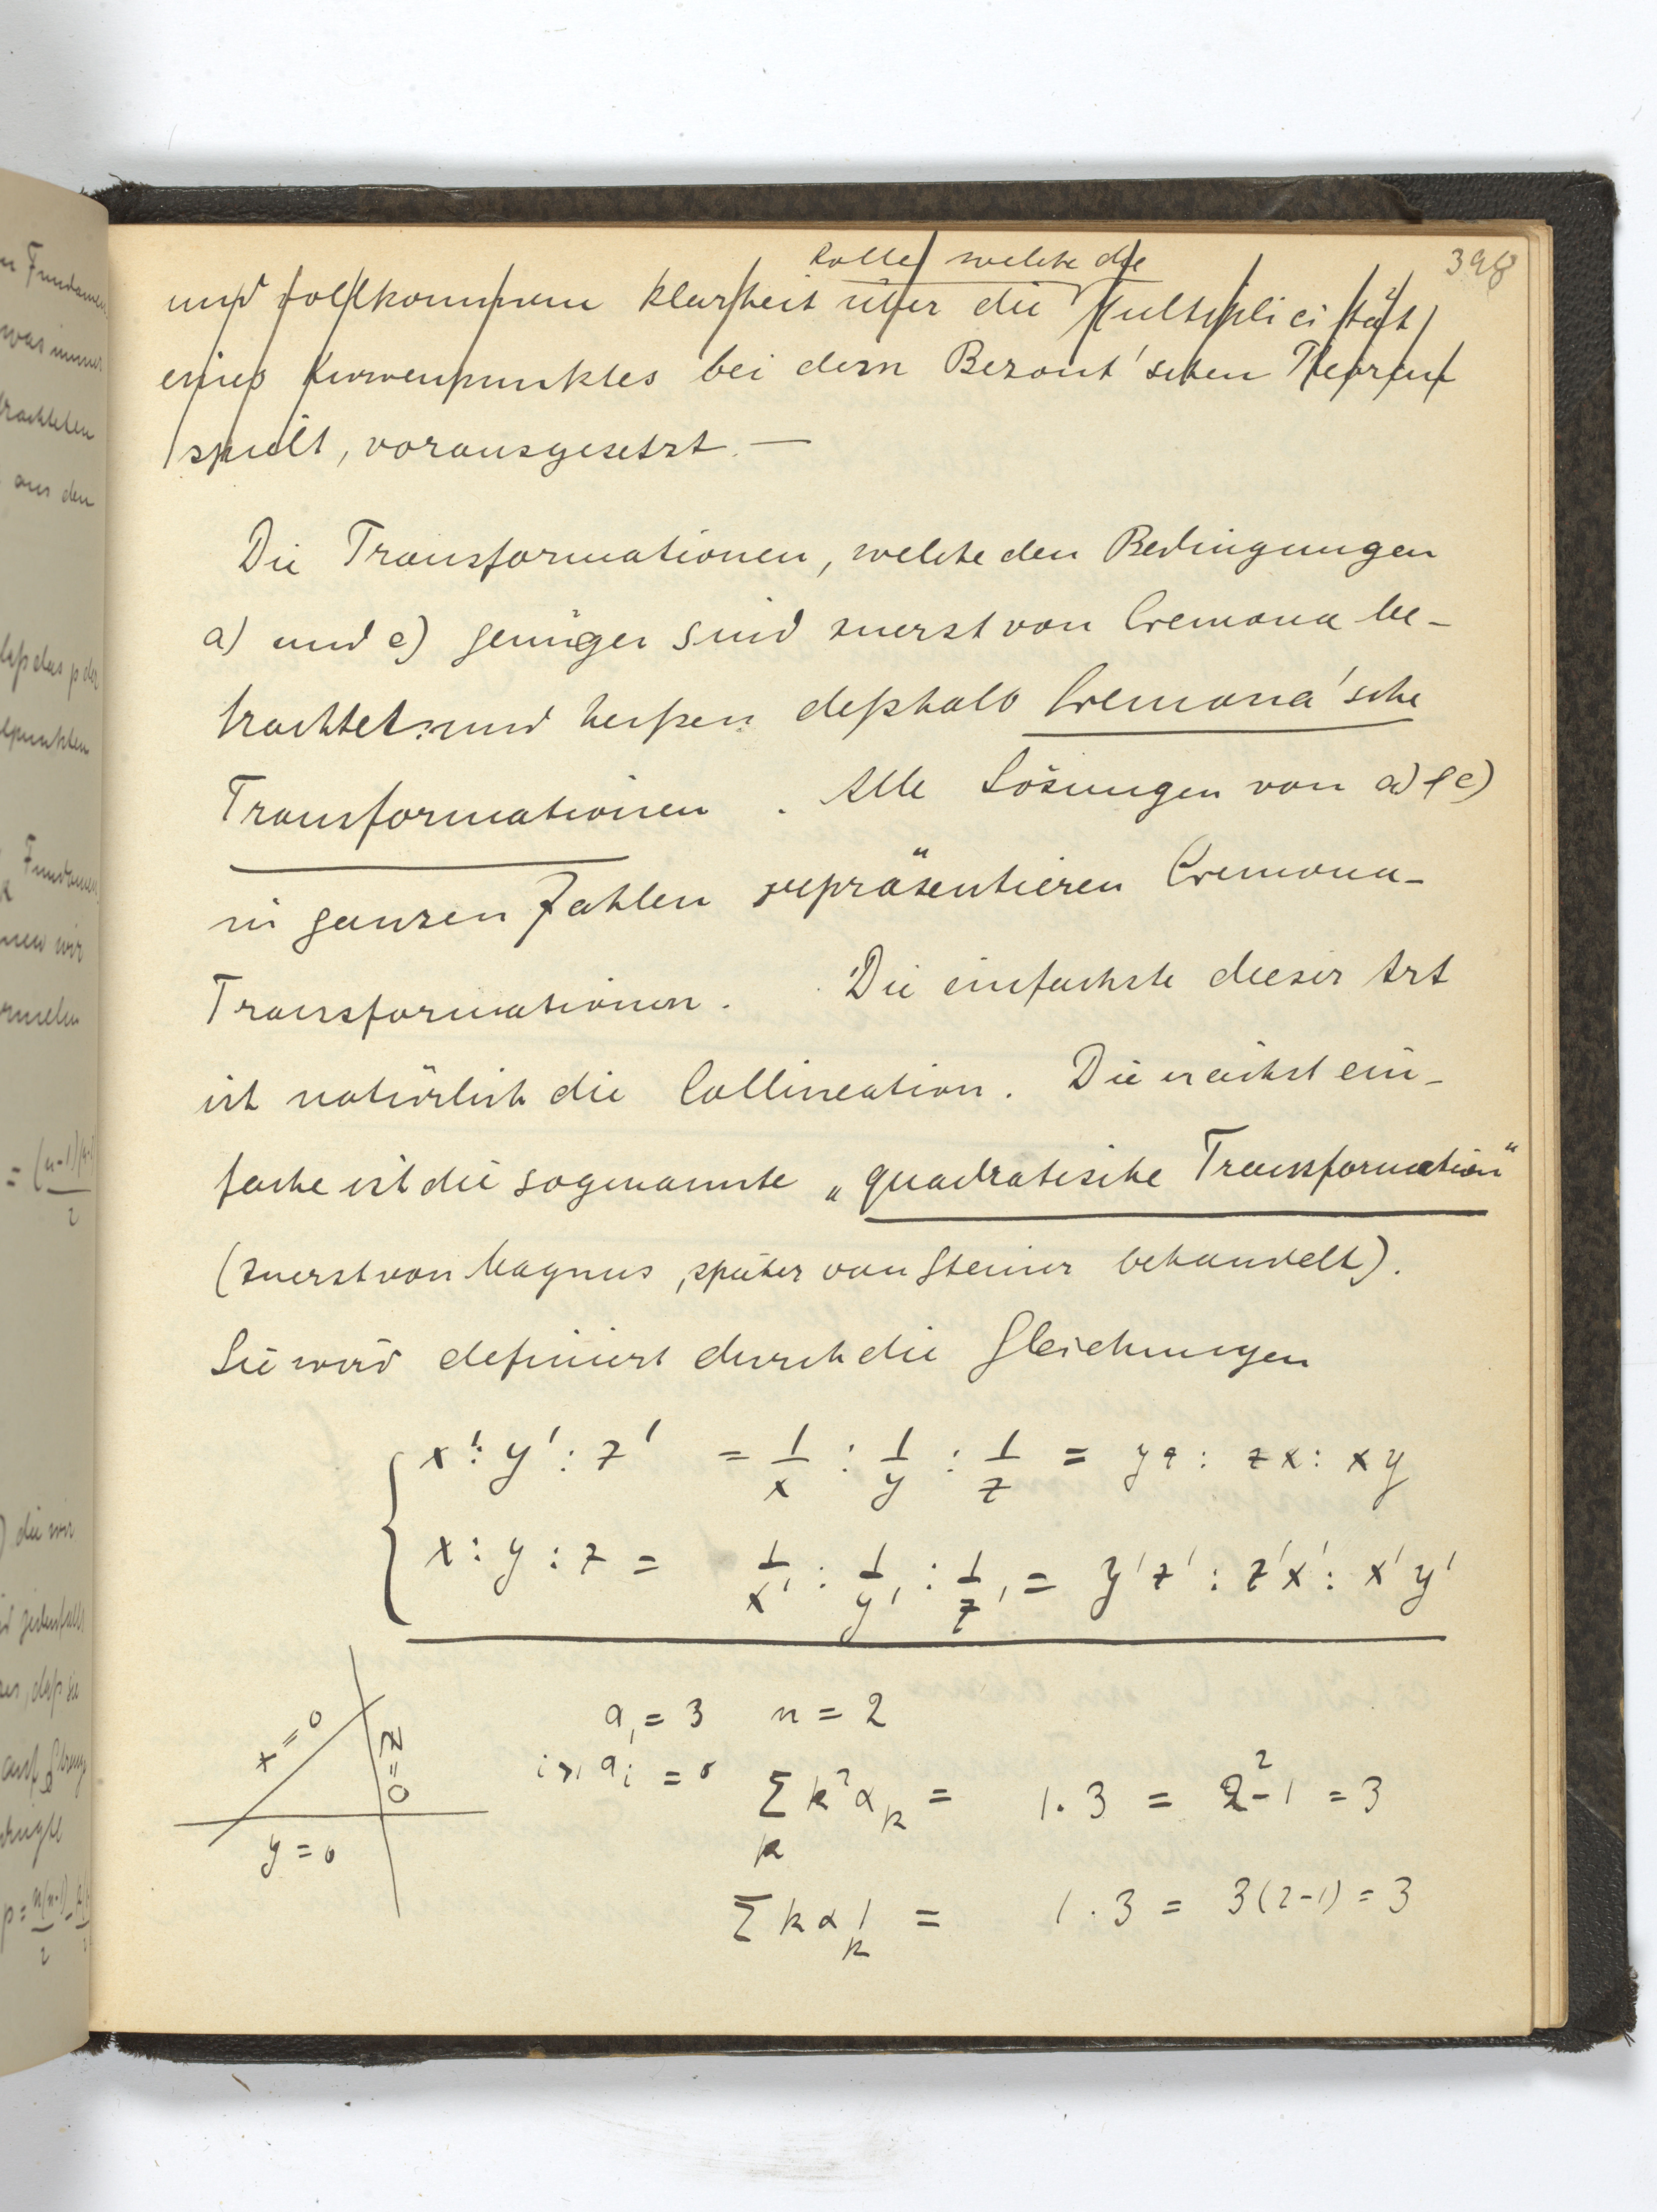 398
Rolle welche die
wird vollkommene Klarheit über die Multiplicität
eines Kurvenpunktes bei dem Bezout'schen Theorem
spielt, vorausgesetzt. —
Die Transformationen, welche den Bedingungen
a) und e) genügen sind zuerst von Cremona be-
trachtet und heißen deßhalb Cremona'sche
Transformationen . Alle Lösungen von a) & e)
in ganzen Zahlen repräsentieren Cremona-
Transformationen. Die einfachste dieser Art
ist natürlich die Collineation. Die nächst ein-
fache ist die sogenannte „quadratische Transformation"
(zuerst von Magnus, später von Steiner behandelt).
Sie wird definiert durch die Gleichungen
x' : y' : z' = 1/x : 1/y : 1/z = yz : zx : xy
x : y : z = 1/x' : 1/y' : 1/z' = y'z' : z'x' : x'y'
x = 0
z = 0
y = 0
α₁ = 3 n = 2
i>1 αᵢ = 0
Σ k² αₖ = 1 . 3 = 2² - 1 = 3
k
Σ k αₖ = 1 . 3 = 3(2-1) = 3